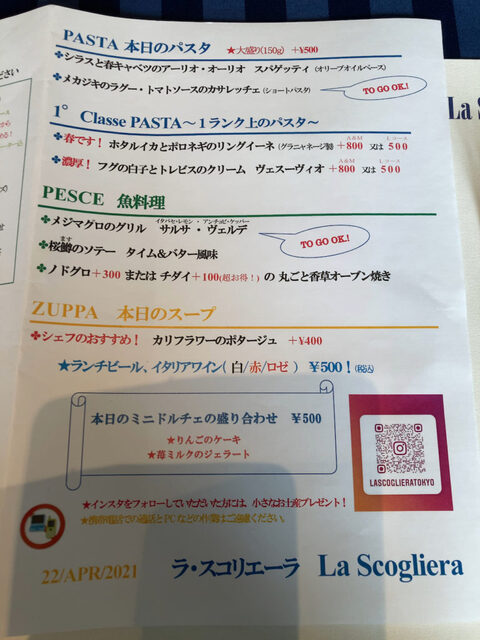 PASTA 本日のパスタ ★大盛り(150g) +¥500
✤シラスと春キャベツのアーリオ・オーリオ スパゲッティ (オリーブオイルベース)
✤メカジキのラグー・トマトソースのカサレッチェ (ショートパスタ)
TO GO OK.!
La S
1° Classe PASTA～１ランク上のパスタ～
A&M Lコース
✤春です！ ホタルイカとポロネギのリングイーネ (グラニャネージ製) +800 又は 500
A&M Lコース
✤濃厚！ フグの白子とトレビスのクリーム ヴェスーヴィオ +800 又は 500
PESCE 魚料理
イタパセ・レモン・アンチョビ・ケッパー
✤メジマグロのグリル サルサ・ヴェルデ
TO GO OK.!
ます
✤桜鱒のソテー タイム&バター風味
✤ノドグロ+300 または チダイ+100(超お得！) の 丸ごと香草オーブン焼き
ZUPPA 本日のスープ
✤シェフのおすすめ！ カリフラワーのポタージュ +¥400
★ランチビール、イタリアワイン( 白/赤/ロゼ ) ¥500！(税込)
本日のミニドルチェの盛り合わせ ¥500
★りんごのケーキ
★苺ミルクのジェラート
LASCOGLIERATOKYO
★インスタをフォローしていただいた方には、小さなお土産プレゼント！
★携帯電話での通話とPCなどの作業はご遠慮ください。
22/APR/2021 ラ・スコリエーラ La Scogliera